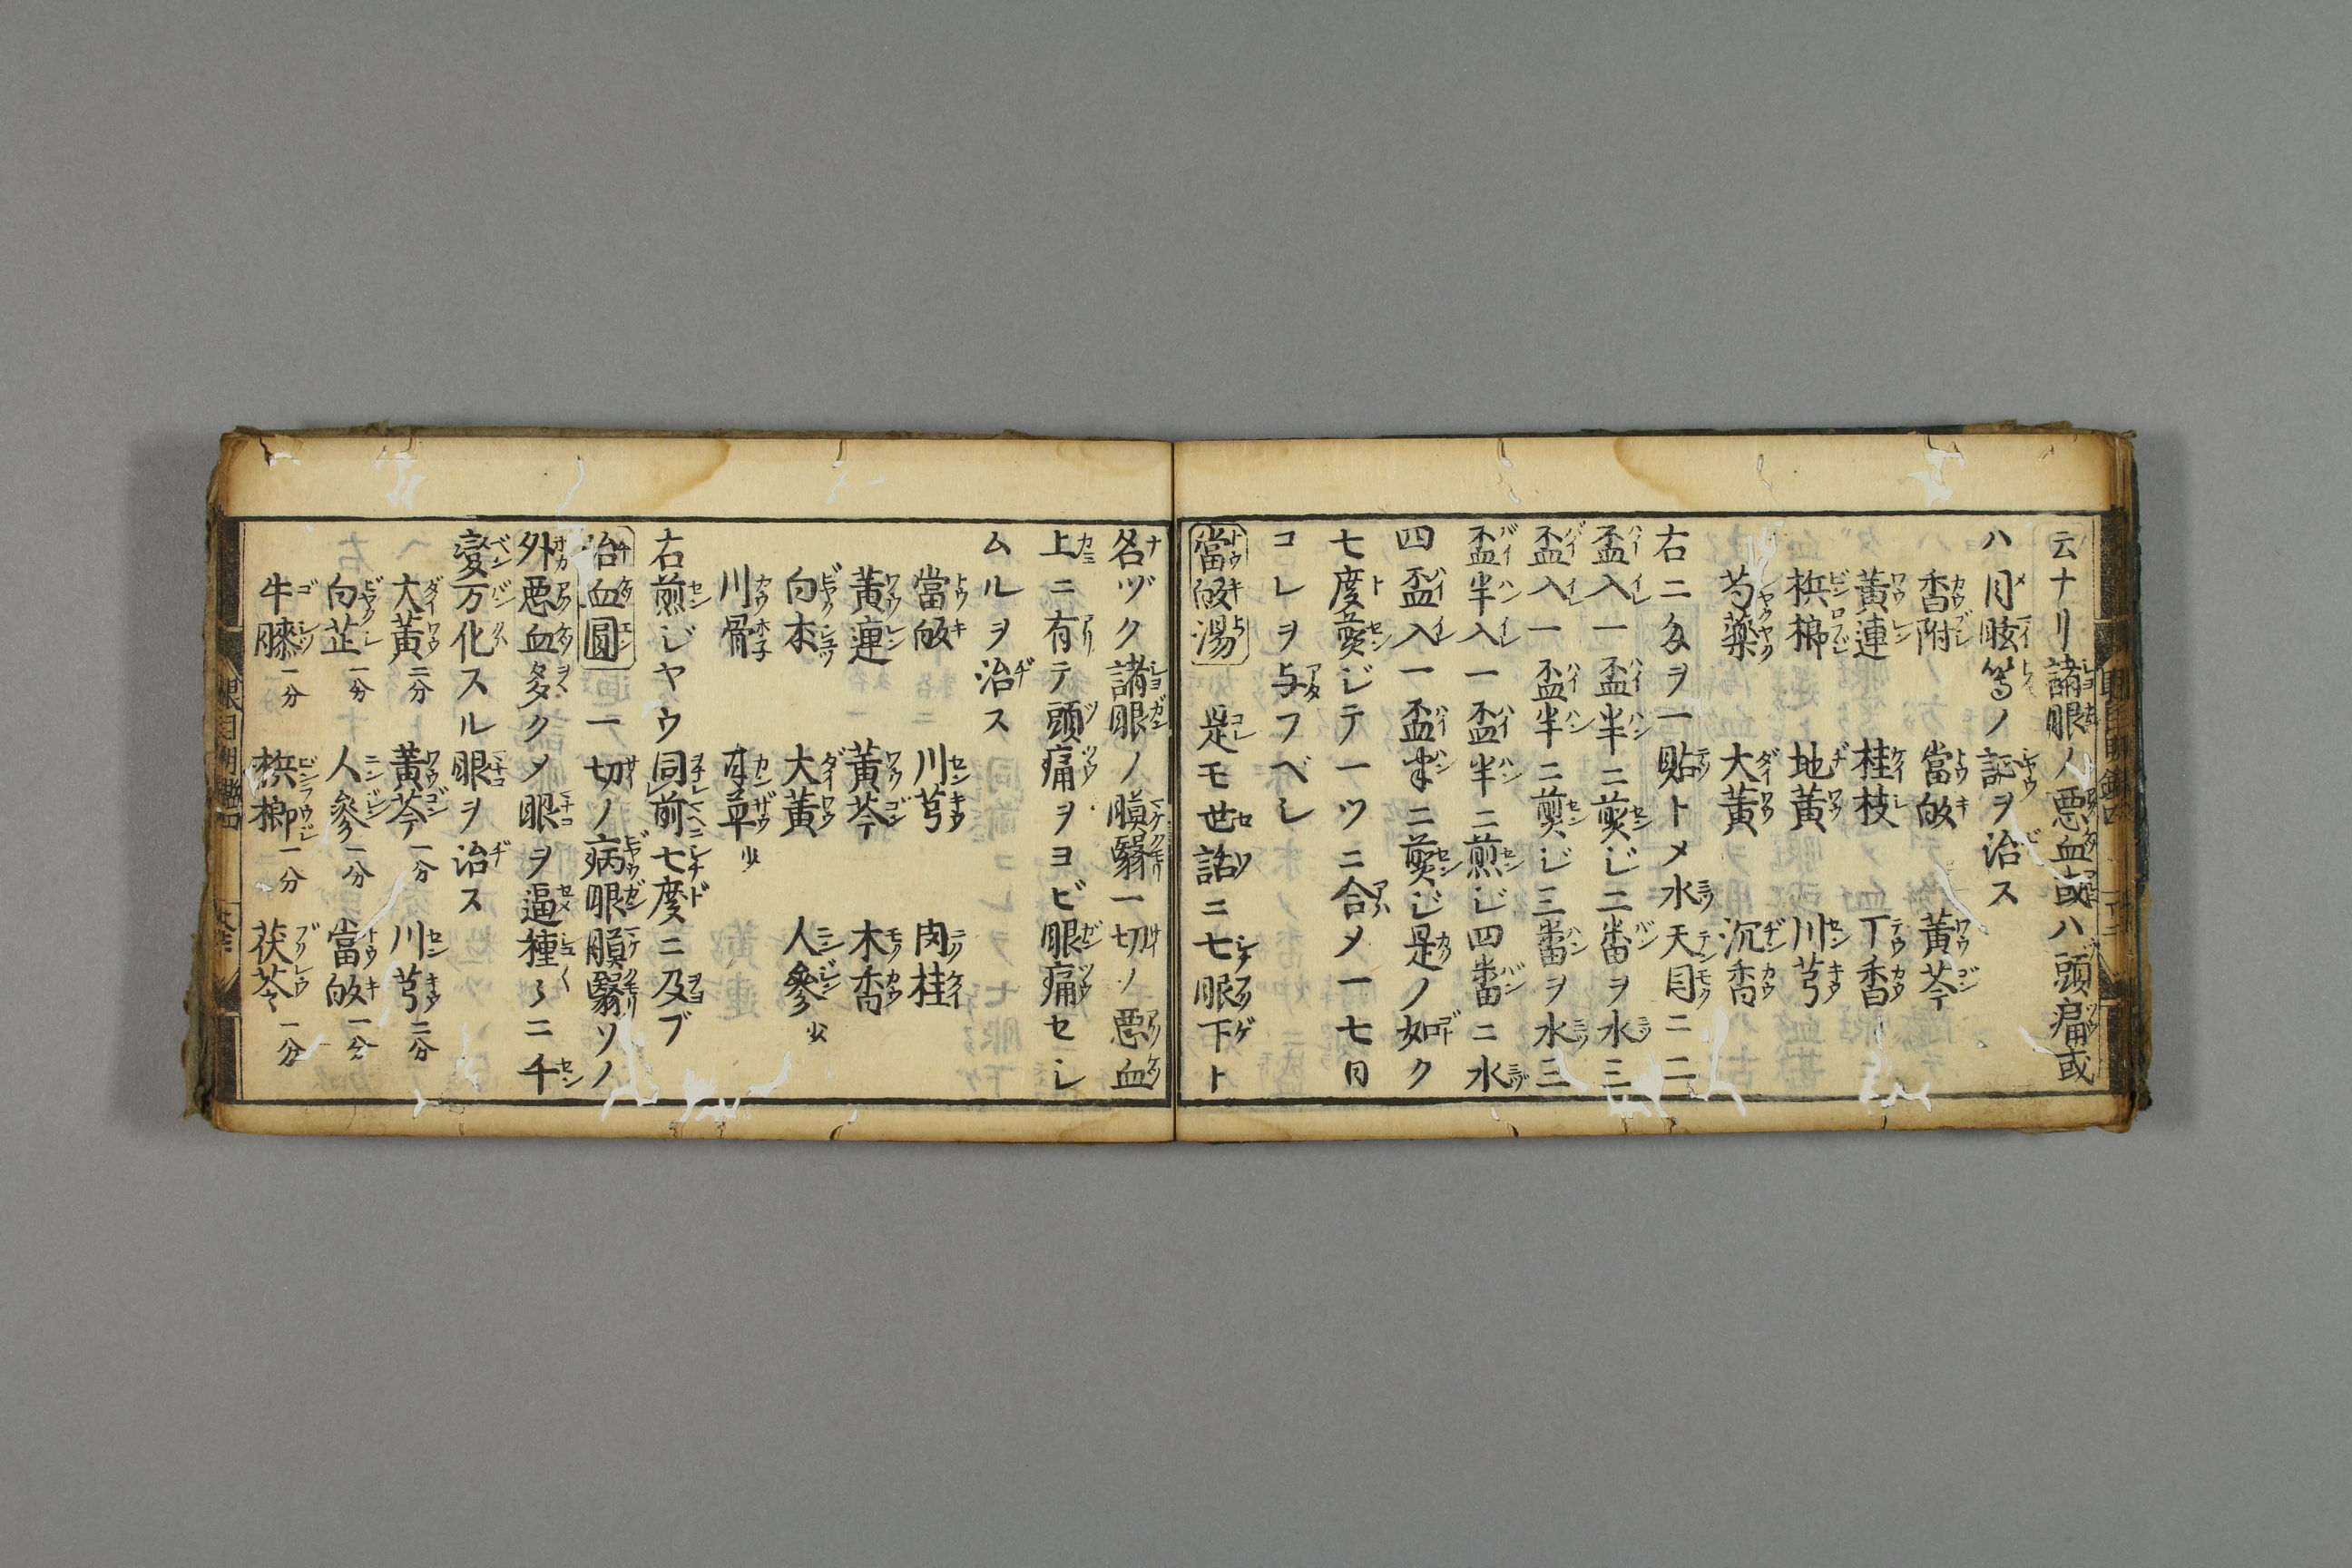 云ナリ諸眼ノ悪血或ハ頭痛或
ハ月眩等ノ証ヲ治ス
香附 當皈 黄芩
黄連 桂枝 丁香
梹榔 地黄 川芎
芍薬 大黄 沉香
右二匁ヲ一貼トメ水天目ニ二
盃入一盃半ニ煎ジ二番ヲ水三
盃入一盃半ニ煎ジ三番ヲ水三
盃半入一盃半ニ煎ジ四番ニ水
四盃入一盃半ニ煎ジ是ノ如ク
七度煎ジテ一ツニ合メ一七日
コレヲ与フベシ
當皈湯 是モ世話ニ七眼下ト
名ヅク諸眼ノ膜翳一切ノ悪血
上ニ有テ頭痛ヲヨビ眼痛セシ
ムルヲ治ス
當皈 川芎 肉桂
黄連 黄芩 木香
白朮 大黄 人參少
川骨 甘草少
右煎ジヤウ同前七度ニ及ブ
治血圓 一切ノ病眼膜翳ソノ
外悪血多クメ眼ヲ逼種々ニ千
變万化スル眼ヲ治ス
大黄二分 黄芩一分 川芎二分
白芷一分 人參一分 當皈一分
牛膝一分 梹榔一分 茯苓一分